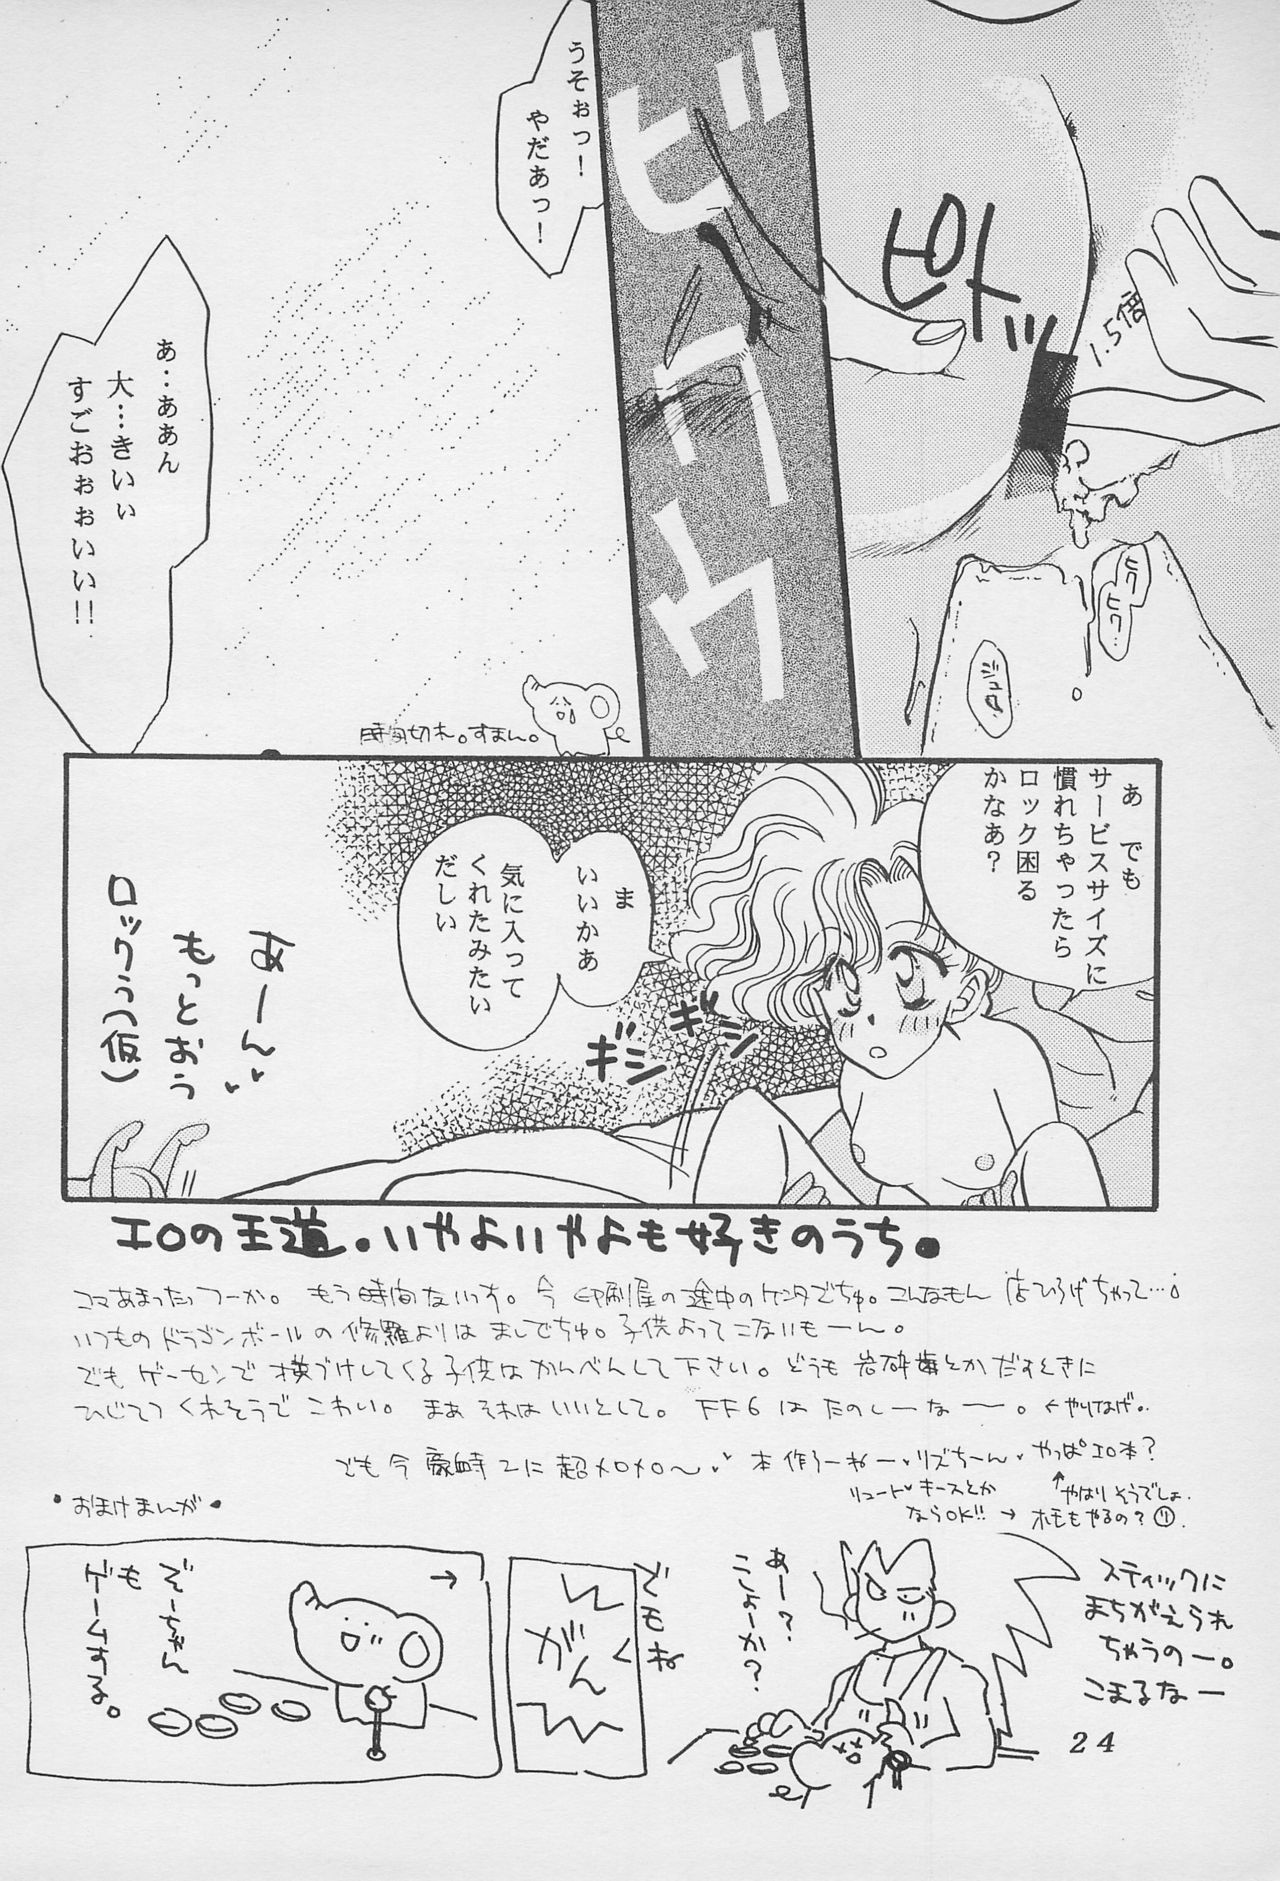 ピトッ
1.5倍
ヒク
ヒク
ビクウ
うそぉっ！
やだあっ！
あ‥ああん
大…きいぃ
すごおぉぉいい!!
時間切れ。すまん。
あ でも
サービスサイズに
慣れちゃったら
ロック困る
かなあ？
ま
いいかぁ
気に入って
くれたみたい
だしい
ギシ
ギシ
あーん
もっとおう
ロックうう(仮)
エロの王道。いやよいやよも好きのうち。
コマあまったっつーか。もう時間ないっす。今 印刷屋の途中のケンタでちゅ。こんなもん 店ひろげちゃって…。
いつものドラゴンボールの修羅よりは ましでちゅ。子供よってこないもーん。
でも ゲーセンで 横づけしてくる子供は かんべんして下さい。どうも 岩砕歯とかだすときに
ひじてつ くれそうで こわい。まぁ それは いいとして。FF6は たのしーなー。←やりなげ。
でも今 豪血寺2に 超メロメロ〜 本 作ろーねー リズちーん やっぱエロ本？
リュート キースとか
ならOK!! → ホモもやるの？
↑やはりそうでしょ。
おまけまんが
→
ぞーちゃん
も
ゲームする。
でもね
がん
あー？
こしょーか？
スティックに
まちがえられ
ちゃうのー。
こまるなー
24